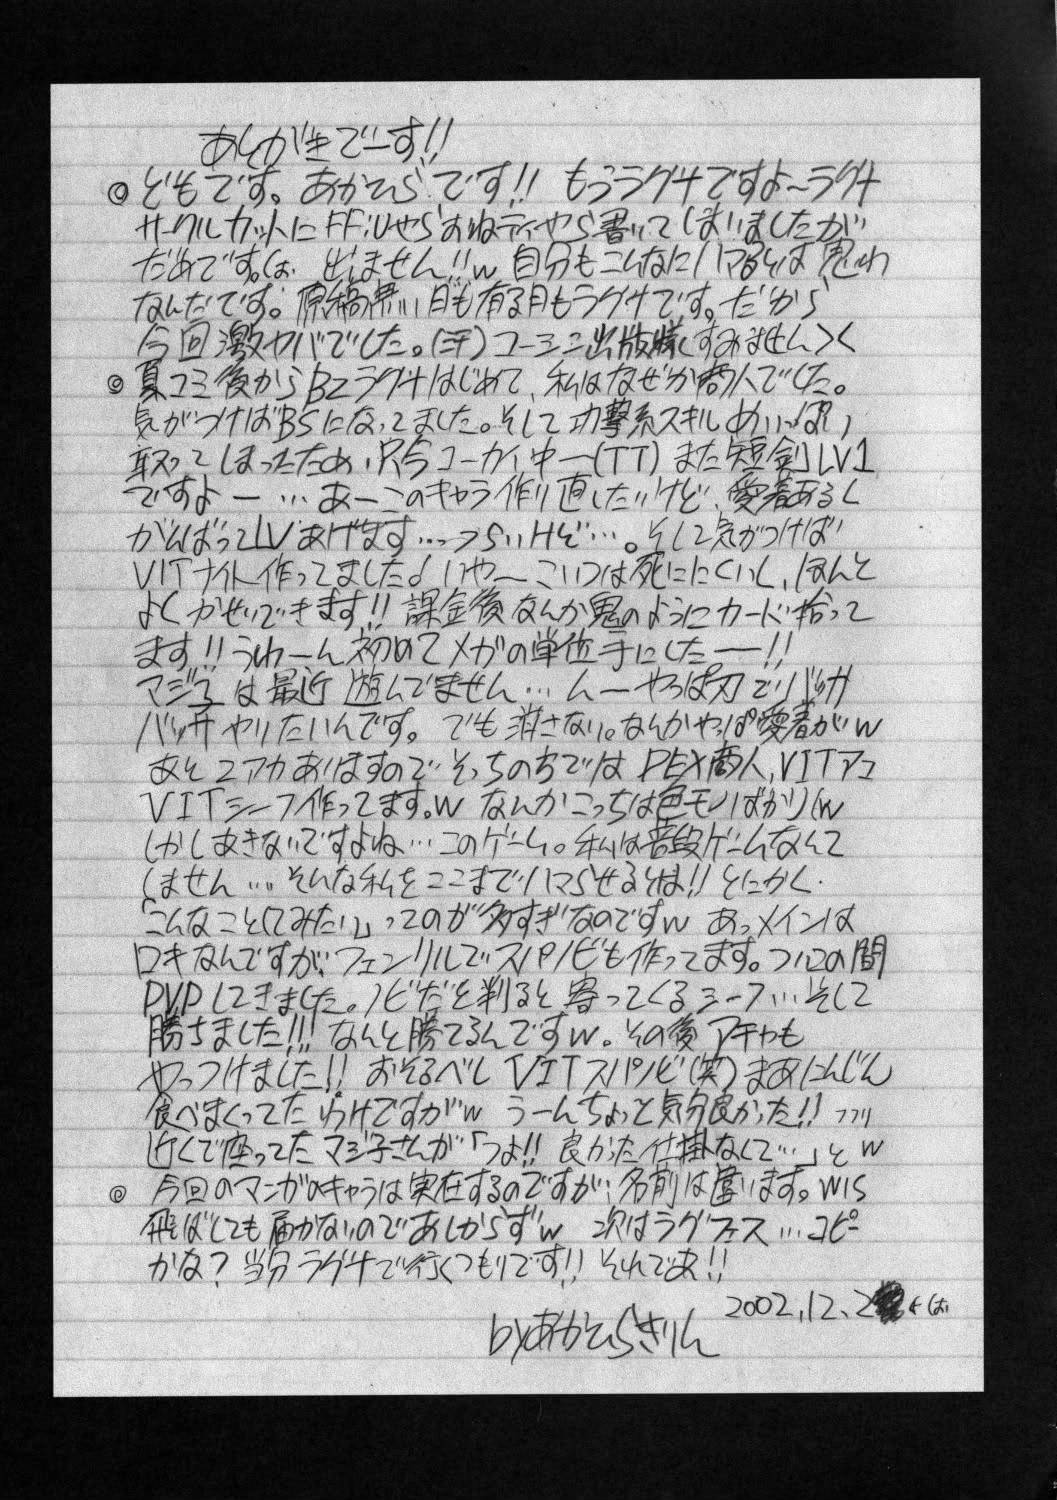 あとがきでーす!!
◎ どもです。あかひらです!! もうラグナですよ～ラグナ
サークルカットにFFⅪやらおねティやら書いてしまいましたが
だめです。(お 出ません!!w 自分もこんなにハマるとは思わ
なんだです。原稿無い月も有る月もラグナです。だから
今回激ヤバでした。(汗) コーシン出版様すみません><
◎ 夏コミ後からβ2ラグナはじめて、私はなぜか商人でした。
気がつけばBSになってました。そして攻撃系スキルめいっぱい
取ってしまったため、只今コーカイ中～(TT) また短剣LV1
ですよー…あーこのキャラ作り直したいけど、愛着あるし
がんばってLVあげます…つらいけど…。そして気がつけば
VITナイト作ってました♩いや～こいつは死ににくいし、ほんと
よくかせいできます!! 課金後なんか鬼のようにカード拾って
ます!! うわーん初めてメガの単位手にしたー!!
マジ子は最近遊んでません…んーやっぱ刃でバッサ
バッサやりたいんです。でも消さない。なんかやっぱ愛着がw
あと2アカありますので、そっちの方ではDEX商人、VITアコ
VITシーフ作ってます。w なんかこっちは色モノばかり(w
しかしあきないですよね…このゲーム。私は普段ゲームなんて
しません…そんな私をここまでハマらせるとは!! とにかく
「こんなことしてみたい」ってのが多すぎなのですw あっメインは
ロキなんですが、フェンリルでスパノビも作ってます。ついこの間
PVPしてきました。ノビだと判ると寄ってくるシーフ…そして
勝ちました!!! なんと勝てるんですw。その後アチャも
やっつけました!! おそるべしVITスパノビ(笑) まあにんじん
食べまくってたわけですがw うーんちょっと気分良かった!!
近くで座ってたマジ子さんが「つよ!! 良かった仕掛なくて…」とw
◎ 今回のマンガのキャラは実在するのですが、名前は違います。wis
飛ばしても届かないのであしからずw 次はラグフェス…コピー
かな? 当分ラグナで行くつもりです!! それでは!!
2002.12.2
byあかひらきりん